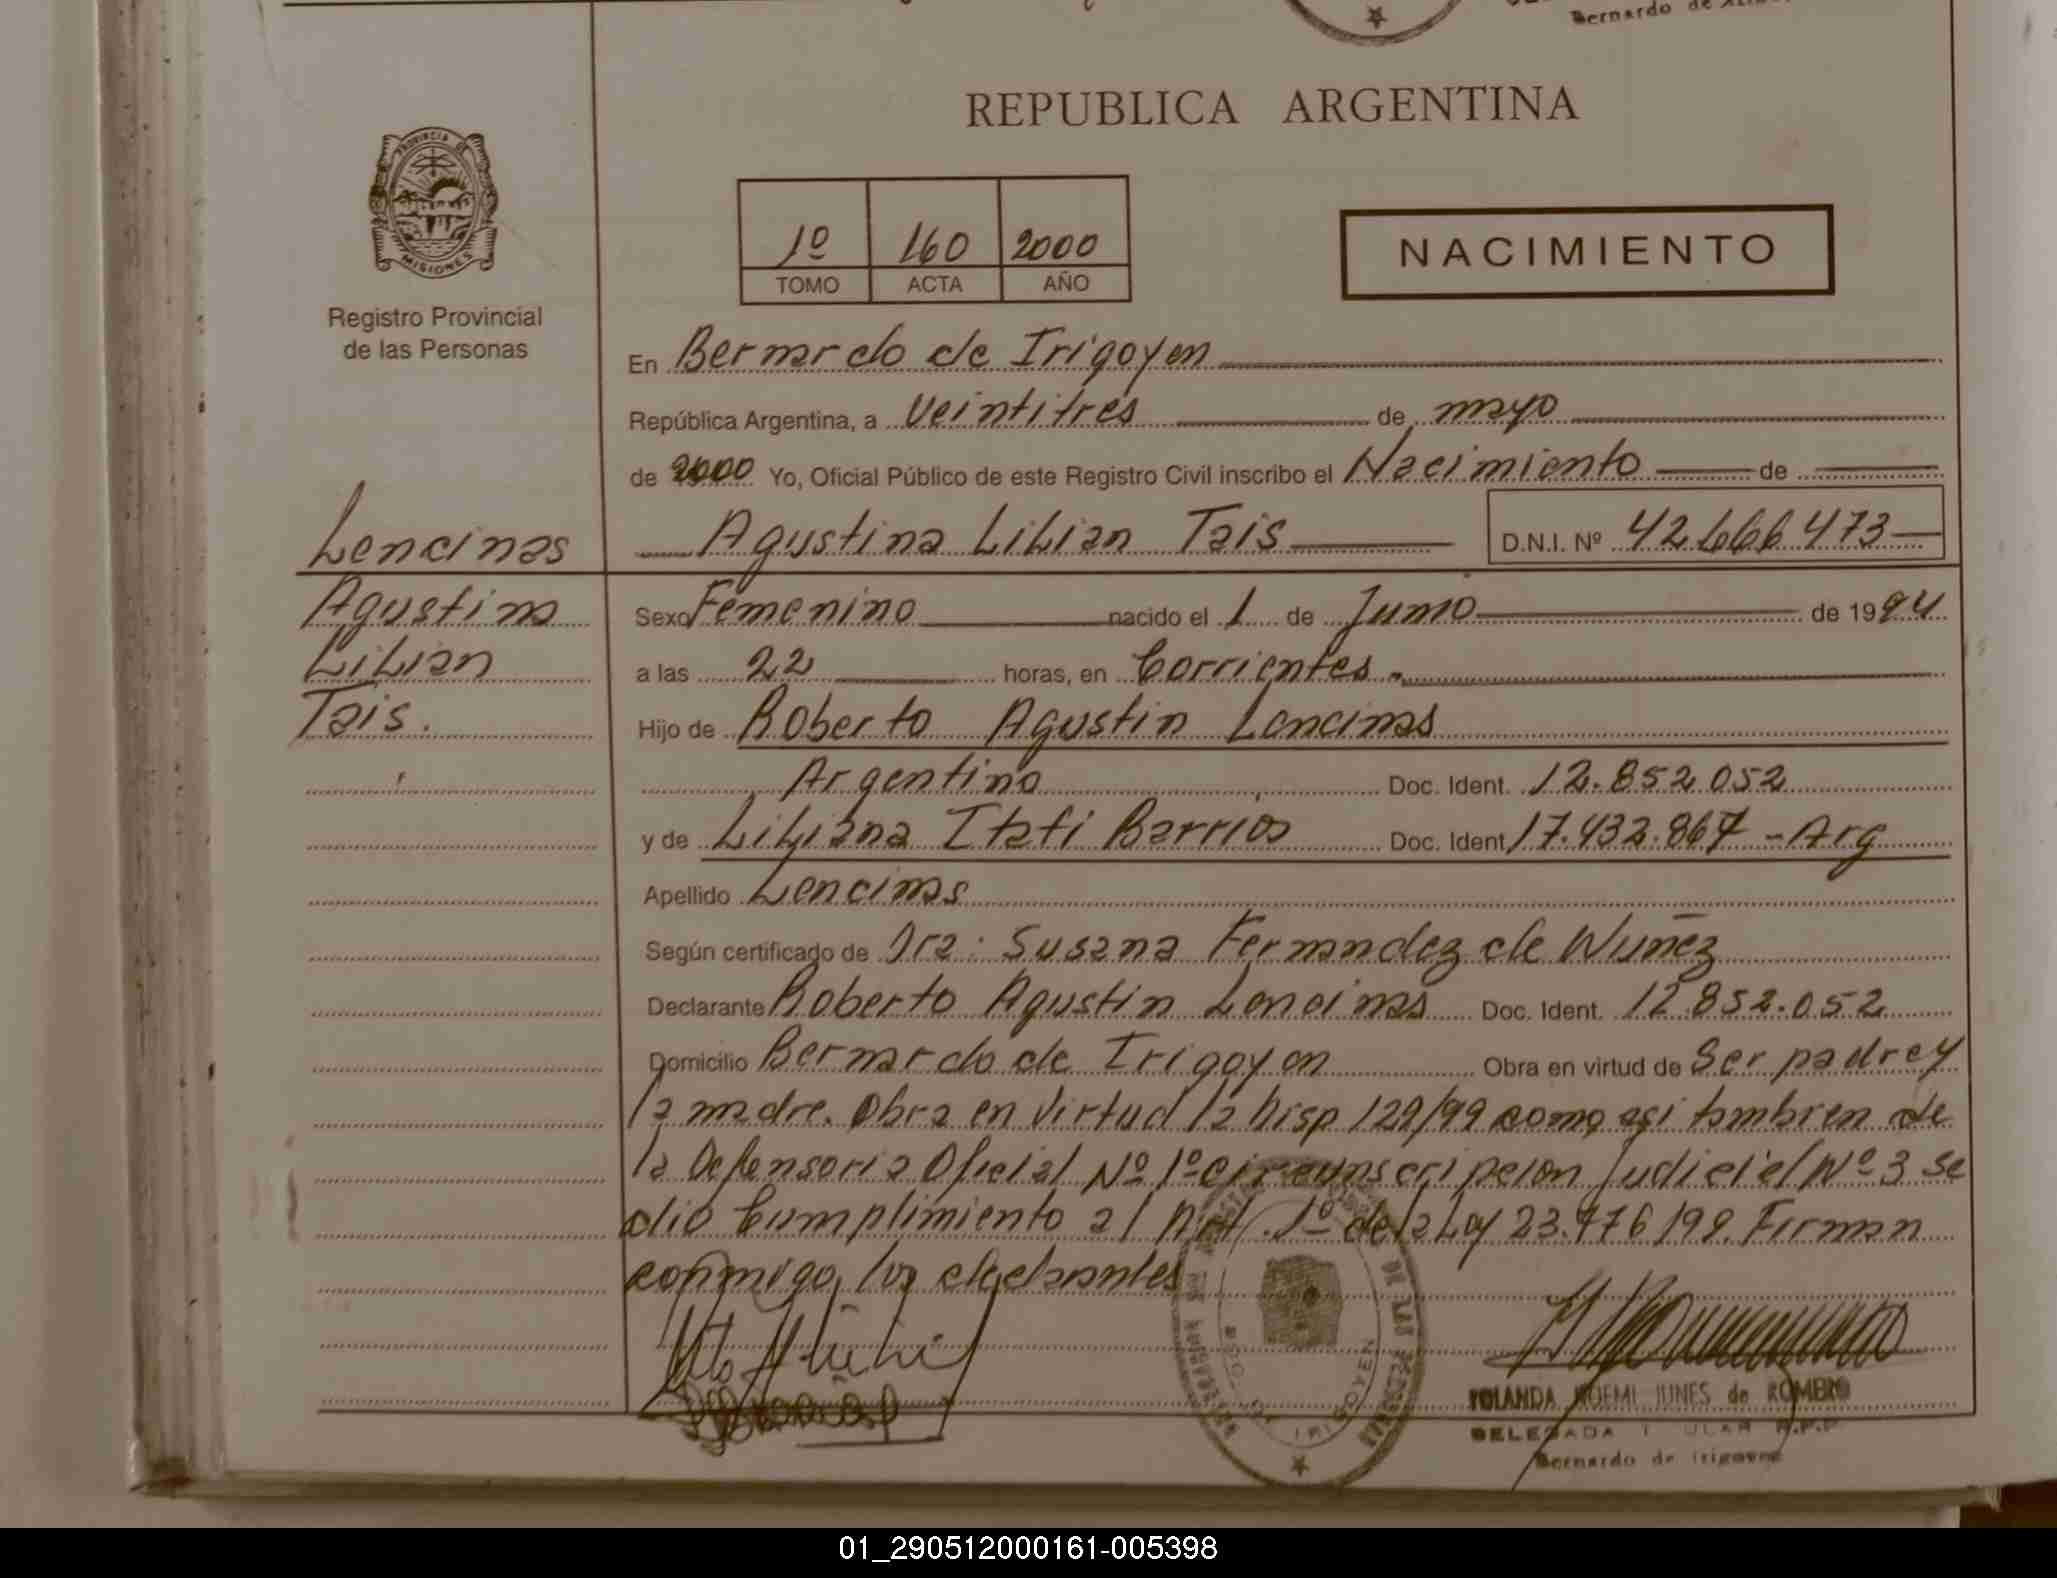 Bernardo de
REPUBLICA ARGENTINA
PROVINCIA DE
MISIONES
Registro Provincial
de las Personas
1º 160 2000
TOMO ACTA AÑO
NACIMIENTO
En Bernardo de Irigoyen
República Argentina, a Veintitres de mayo
de 2000 Yo, Oficial Público de este Registro Civil inscribo el Nacimiento de
Agustina Lilian Tais D.N.I. Nº 42.666473
Lencinas
Agustina
Lilian
Tais.
Sexo Femenino nacido el 1 de Junio de 1994
a las 22 horas, en Corrientes.
Hijo de Roberto Agustin Lencinas
Argentino Doc. Ident. 12.852.052
y de Liliana Itati Barrios Doc. Ident 17.432.867 - Arg
Apellido Lencinas
Según certificado de Dra: Susana Fernandez de Nuñez
Declarante Roberto Agustin Lencinas Doc. Ident. 12.852.052
Domicilio Bernardo de Irigoyen Obra en virtud de Ser padre y
la madre. Obra en virtud la Disp 129/99 como asi tambien de
la Defensoria Oficial Nº 1º circunscripcion Judicial Nº 3 se
dio Cumplimiento al Art. 1º de la Ley 23.776/98. Firman
conmigo, los declarantes
DE LAS PERSONAS
IRIGOYEN
YOLANDA NOEMI JUNES de ROMERO
DELEGADA TITULAR R.P.P.
Bernardo de Irigoyen
01_290512000161-005398